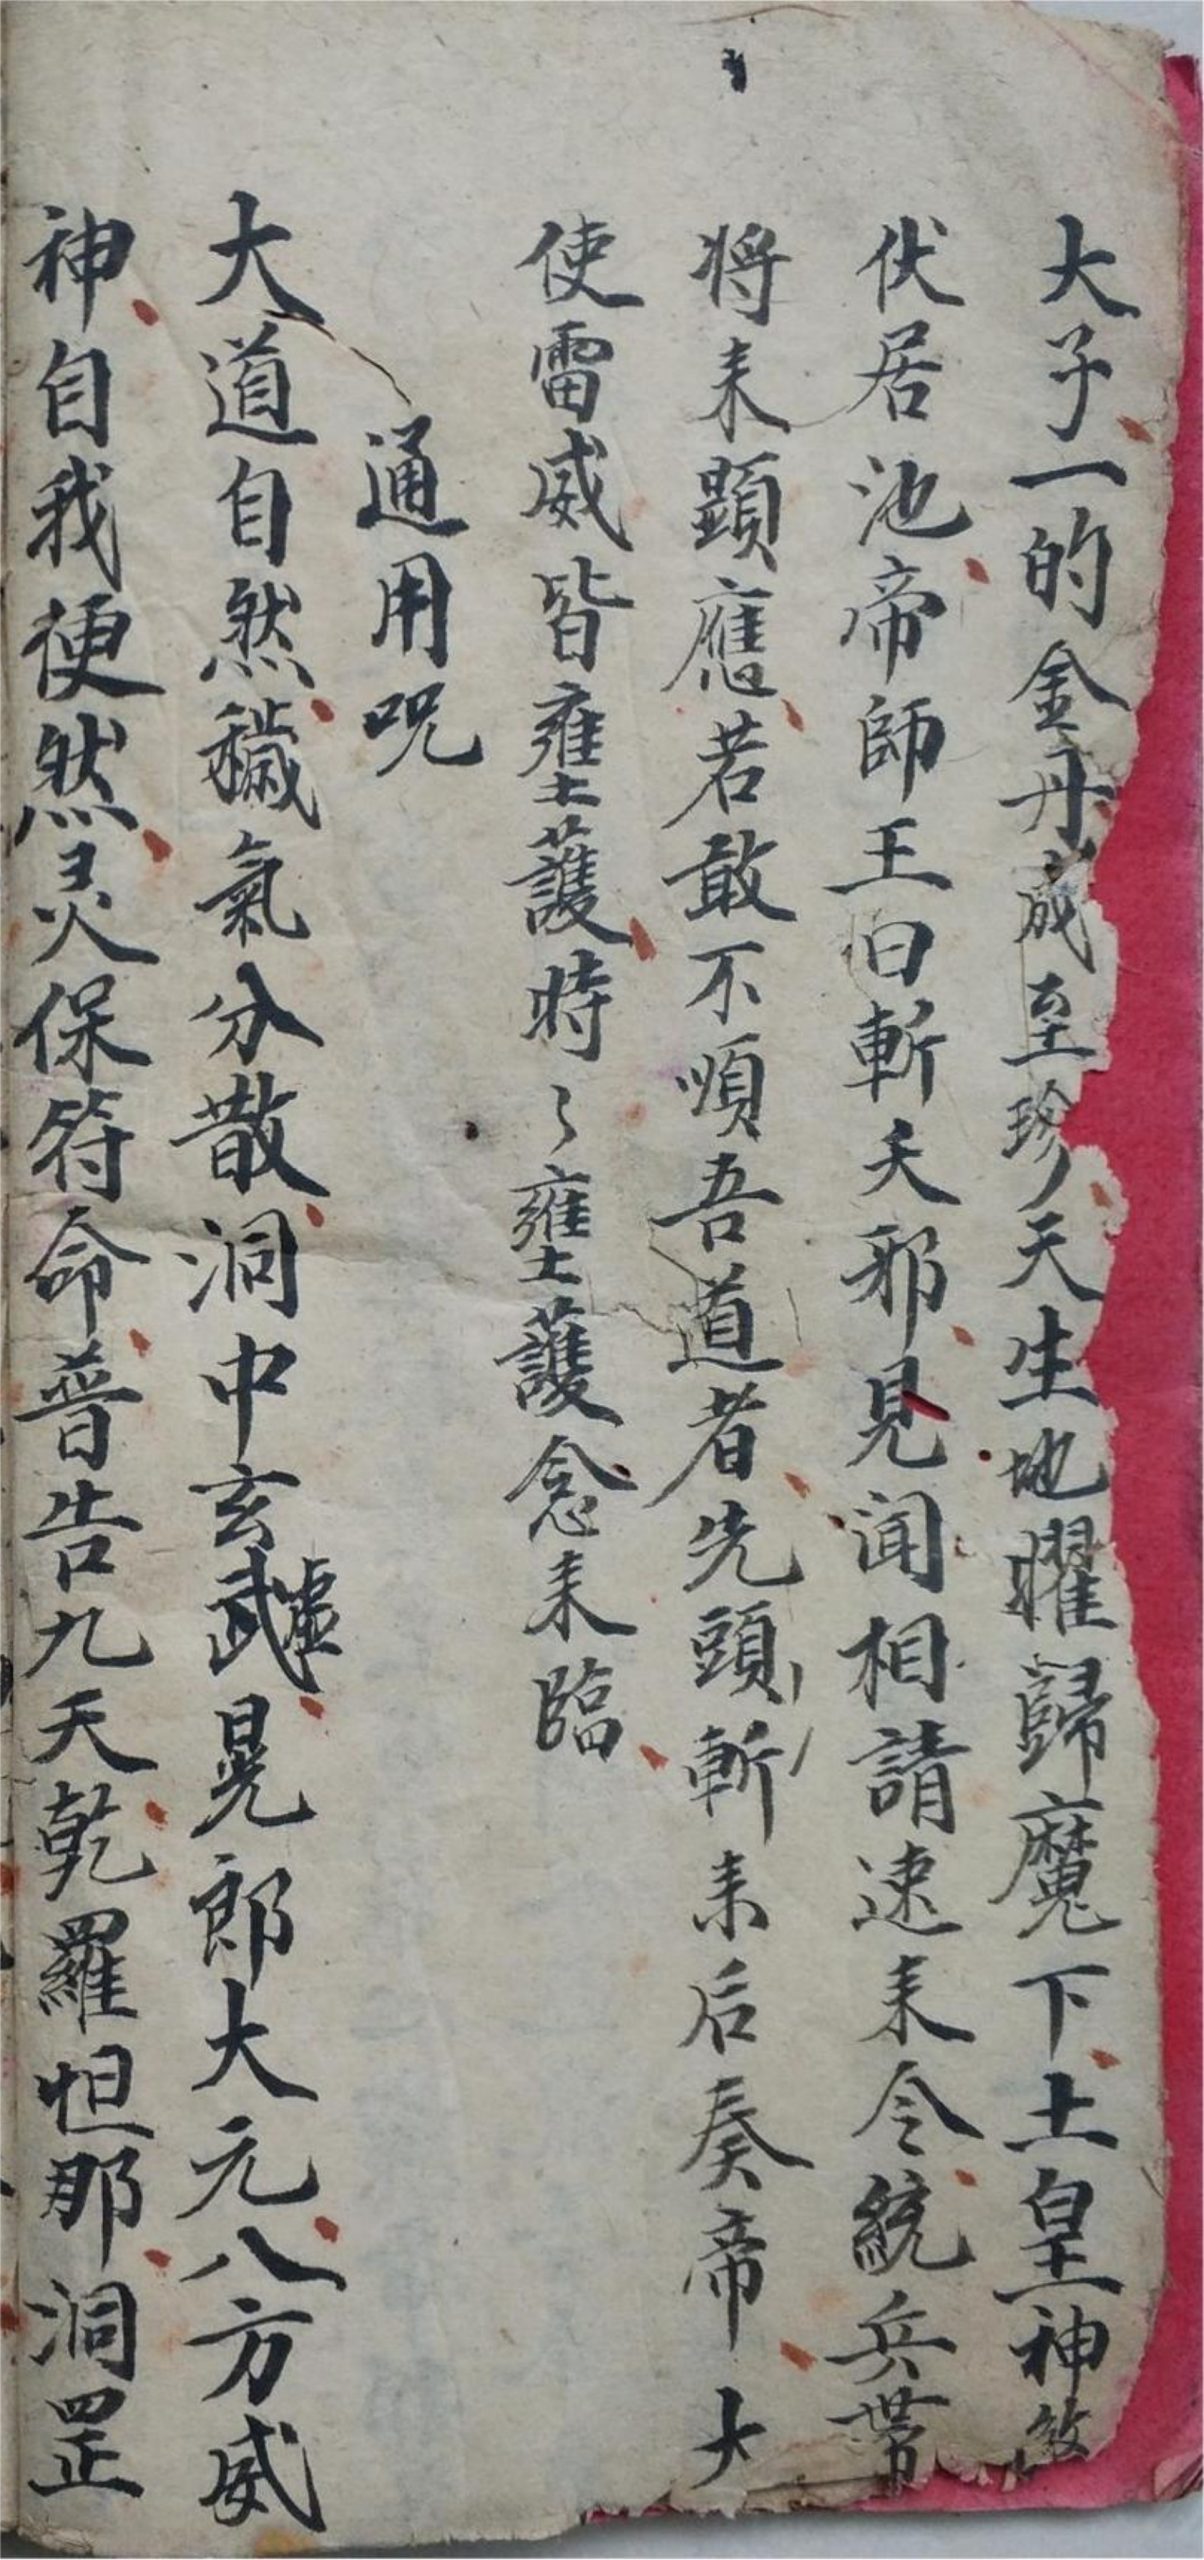 大子一的金丹成至珍天生地曜歸魔下土皇神
伏居池帝師王曰斬夭邪見闻相請速耒令統兵帶
将耒顕應若敢不順吾道者先頭斬耒后奏帝大
使雷威皆壅護時々壅護念耒臨
通用呪
大道自然穢氣分散洞中玄武虛晃郎大元八方威
神自我㪅然灵保符命普告九天乾羅怛那洞罡